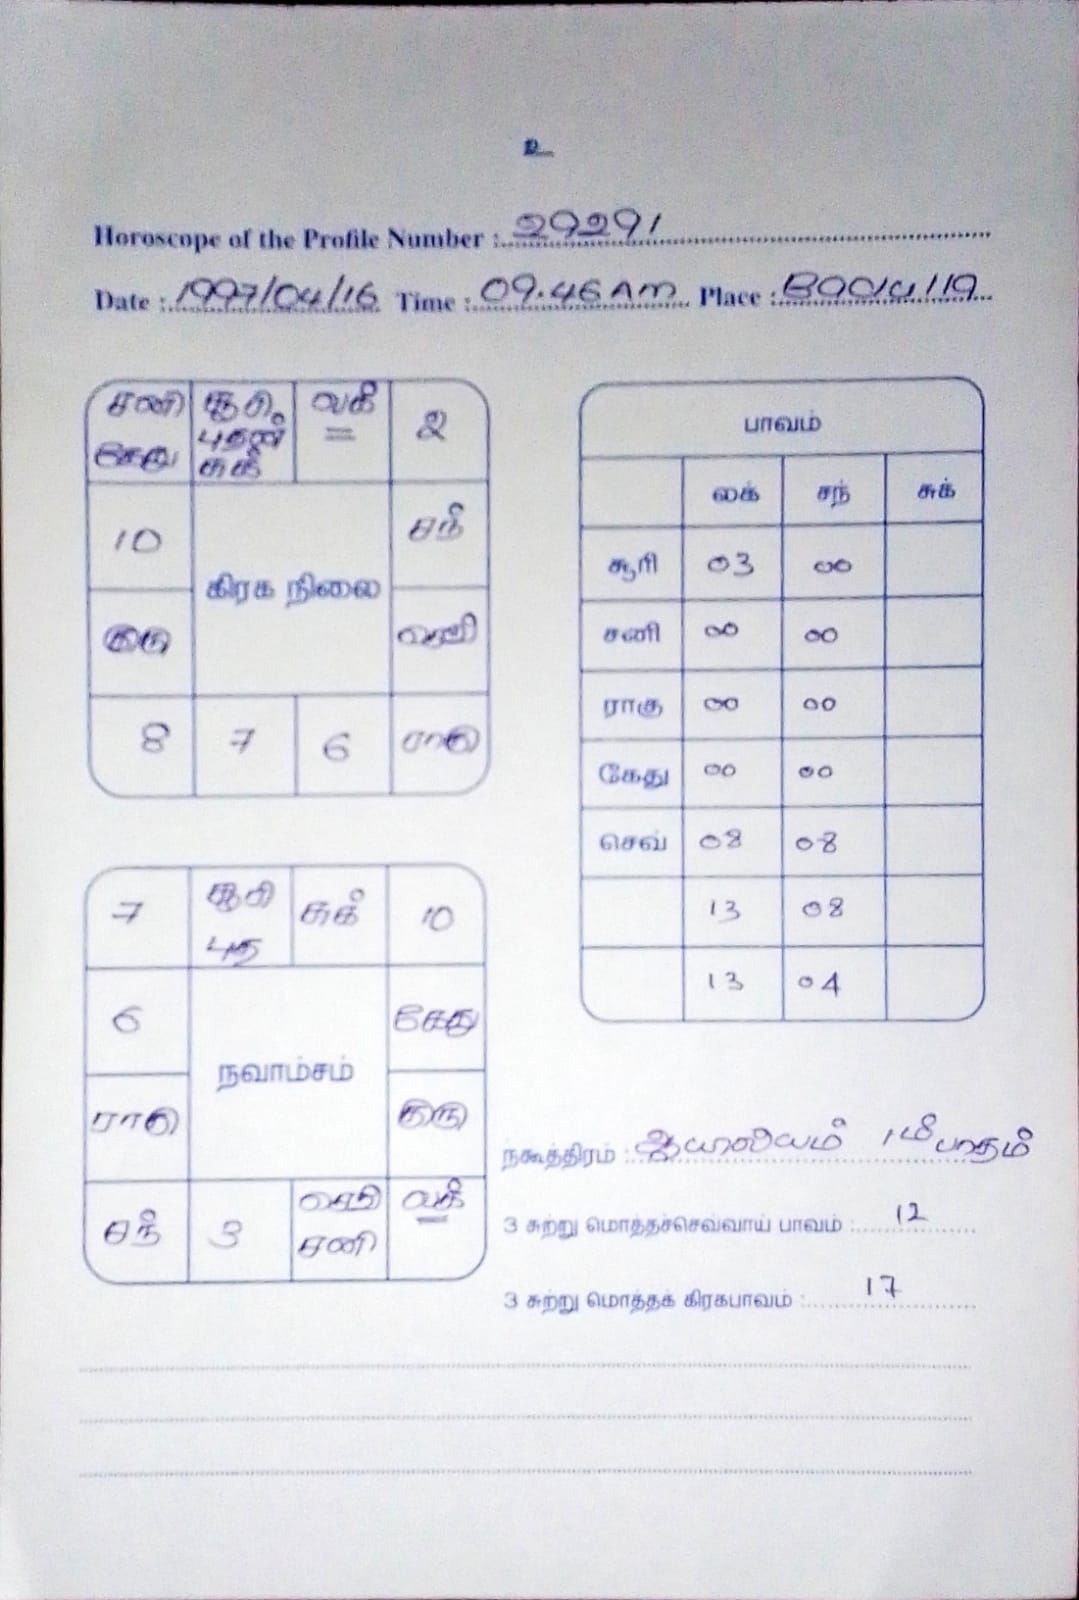 உ
Horoscope of the Profile Number : 29291
Date : 1997/04/16 Time : 09.46 AM Place :
சனி சூரி லக் 2
கேது புதன்
சுக்
10 சந்
கிரக நிலை
குரு செவ்
8 7 6 ராகு
பாவம்
லக் சந் சுக்
சூரி 03 00
சனி 00 00
ராகு 00 00
கேது 00 00
செவ் 08 08
13 08
13 04
7 சூரி சுக் 10
புத
6 கேது
நவாம்சம்
ராகு குரு
சந் 3 செவ் லக்
சனி
நக்ஷத்திரம் : ஆயிலியம் 1ம் பாதம்
3 சுற்று மொத்தச்செவ்வாய் பாவம் : 12
3 சுற்று மொத்தக் கிரகபாவம் : 17